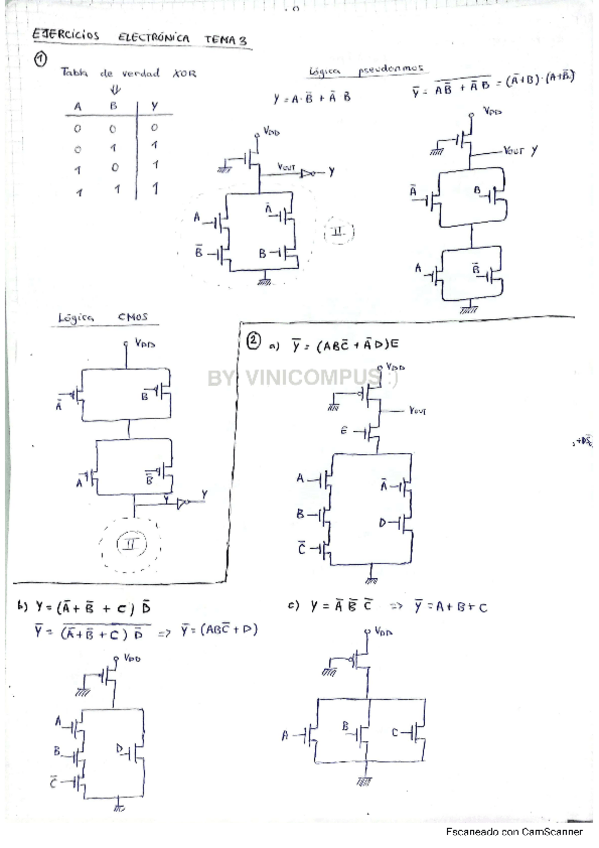 EJERCICIOS ELECTRÓNICA TEMA 3
①
Tabla de verdad XOR
A B Y
0 0 0
0 1 1
1 0 1
1 1 1
Lógica pseudonmos
Y = A·B̅ + A̅ B
Y̅ = \overline{AB̅ + A̅B} = (A̅+B)·(A+B̅)
VDD
VOUT Y
A A̅
B̅ B
II
VDD
VOUT Y
A̅ B
A B̅
Lógica CMOS
VDD
A̅ B
A B̅
Y̅ Y
II
② a) Y̅ = (ABC̅ + A̅D)E
BY VINICOMPUS :)
VDD
VOUT
E
A A̅
B D
C̅
b) Y = (A̅ + B̅ + C) D̅
Y̅ = \overline{(A̅ + B̅ + C) D̅} => Y̅ = (ABC̅ + D)
VDD
A
B D
C̅
c) Y = A̅ B̅ C̅ => Y̅ = A + B + C
VDD
A B C
Escaneado con CamScanner